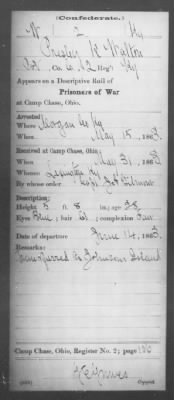 (Confederate.)
W 2 Ky
Presley N Walton
Col. Co. 12 Reg't Ky
Appears on a Descriptive Roll of
Prisoners of War
at Camp Chase, Ohio.
Arrested:
Where Morgan Co Ky
When May 15, 1863
Received at Camp Chase, Ohio:
When May 31, 1863
Whence Lexington Ky
By whose order
Description:
Height 5 ft. 8 in.; age 38
Eyes Blue; hair; complexion Fair
Date of departure June 14, 1863.
Remarks:
Transferred to Johnsons Island
Camp Chase, Ohio, Register No. 2; page
Copyist.